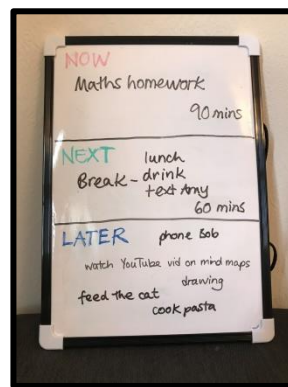 NOW
Maths homework
90 mins
NEXT lunch
Break - drink
text Amy
60 mins
LATER phone Bob
watch YouTube vid on mind maps
drawing
feed the cat
cook pasta